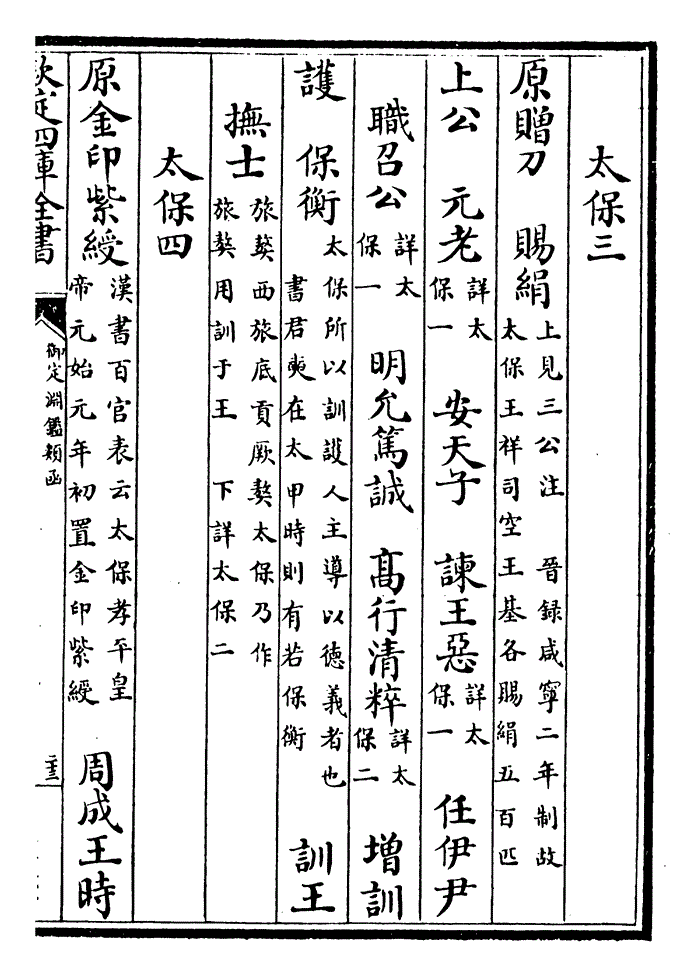 太保三
原贈刀　賜絹上見三公注　晉録咸寧二年制故太保王祥司空王基各賜絹五百匹
上公　元老詳太保一　安天子　諫王惡詳太保一　任伊尹
職召公詳太保一　明允篤誠　髙行清粹詳太保二　增訓
護　保衡太保所以訓護人主導以徳義者也書君奭在太甲時則有若保衡　訓王
撫士旅獒西旅底貢厥獒太保乃作旅獒用訓于王　下詳太保二
太保四
原金印紫綬漢書百官表云太保孝平皇帝元始元年初置金印紫綬　周成王時
欽定四庫全書
御定淵鑑類函